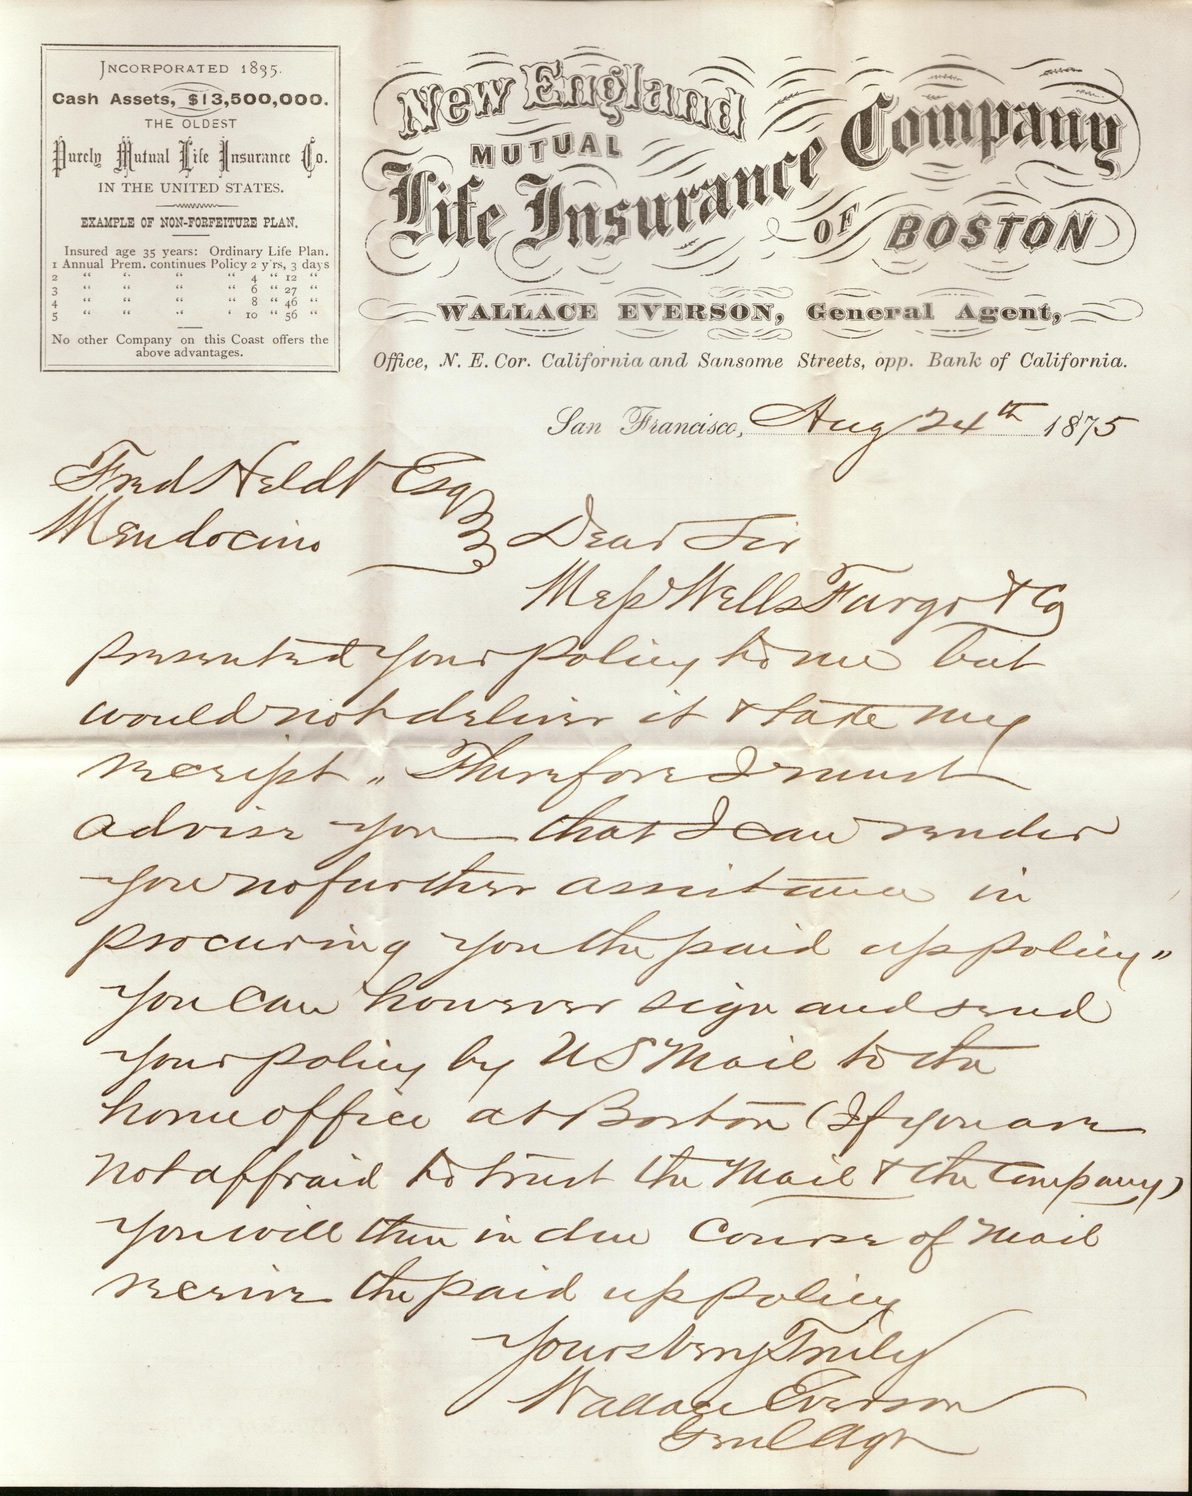 INCORPORATED 1835.
Cash Assets, $13,500,000.
THE OLDEST
Purely Mutual Life Insurance Co.
IN THE UNITED STATES.
EXAMPLE OF NON-FORFEITURE PLAN.
Insured age 35 years: Ordinary Life Plan.
1 Annual Prem. continues Policy 2 y'rs, 3 days
2 " " " " 4 " 12 "
3 " " " " 6 " 27 "
4 " " " " 8 " 46 "
5 " " " " 10 " 56 "
No other Company on this Coast offers the
above advantages.
New England
MUTUAL
Life Insurance Company
OF BOSTON
WALLACE EVERSON, General Agent,
Office, N. E. Cor. California and Sansome Streets, opp. Bank of California.
San Francisco, Aug 24th 1875
Fred Heldt Esq
Mendocino
Dear Sir
Mess Wells Fargo & Co
presented your policy to me but
would not deliver it & take my
receipt " Therefore I must
advise you that I can render
you no further assistance in
procuring you the paid up policy "
you can however sign and send
your policy by US Mail to the
home office at Boston (If you are
not affraid to trust the Mail & the Company)
you will then in due course of Mail
receive the paid up policy
Yours very Truly
Wallace Everson
Genl Agt